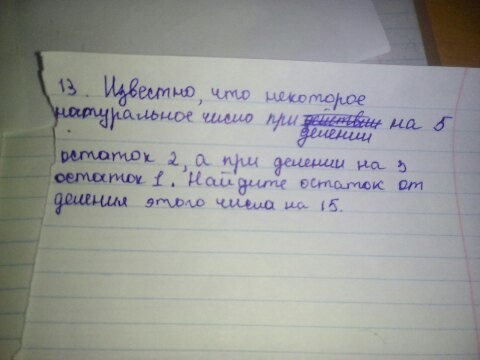 13. Известно, что некоторое
натуральное число при действии на 5
делении
остаток 2, а при делении на 3
остаток 1. Найдите остаток от
деления этого числа на 15.